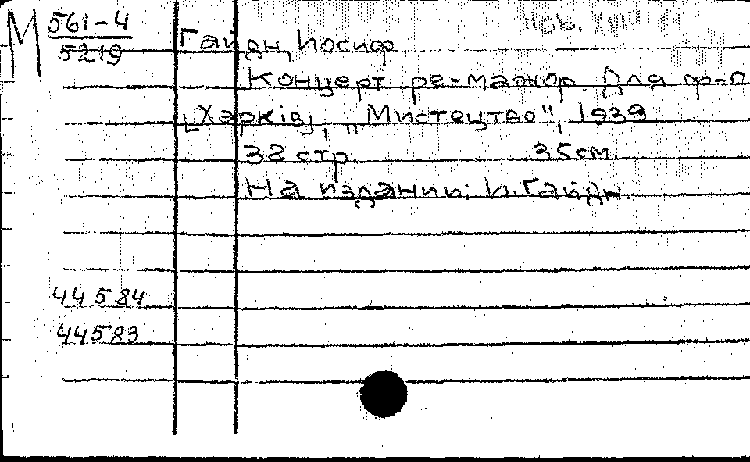 М 561-4
5219
Гайдн, Иосиф
Концерт ре-мажор для ф-п
[Харків], "Мистецтво", 1939
32 стр. 35см
На издании: И. Гайдн.
44584
44583